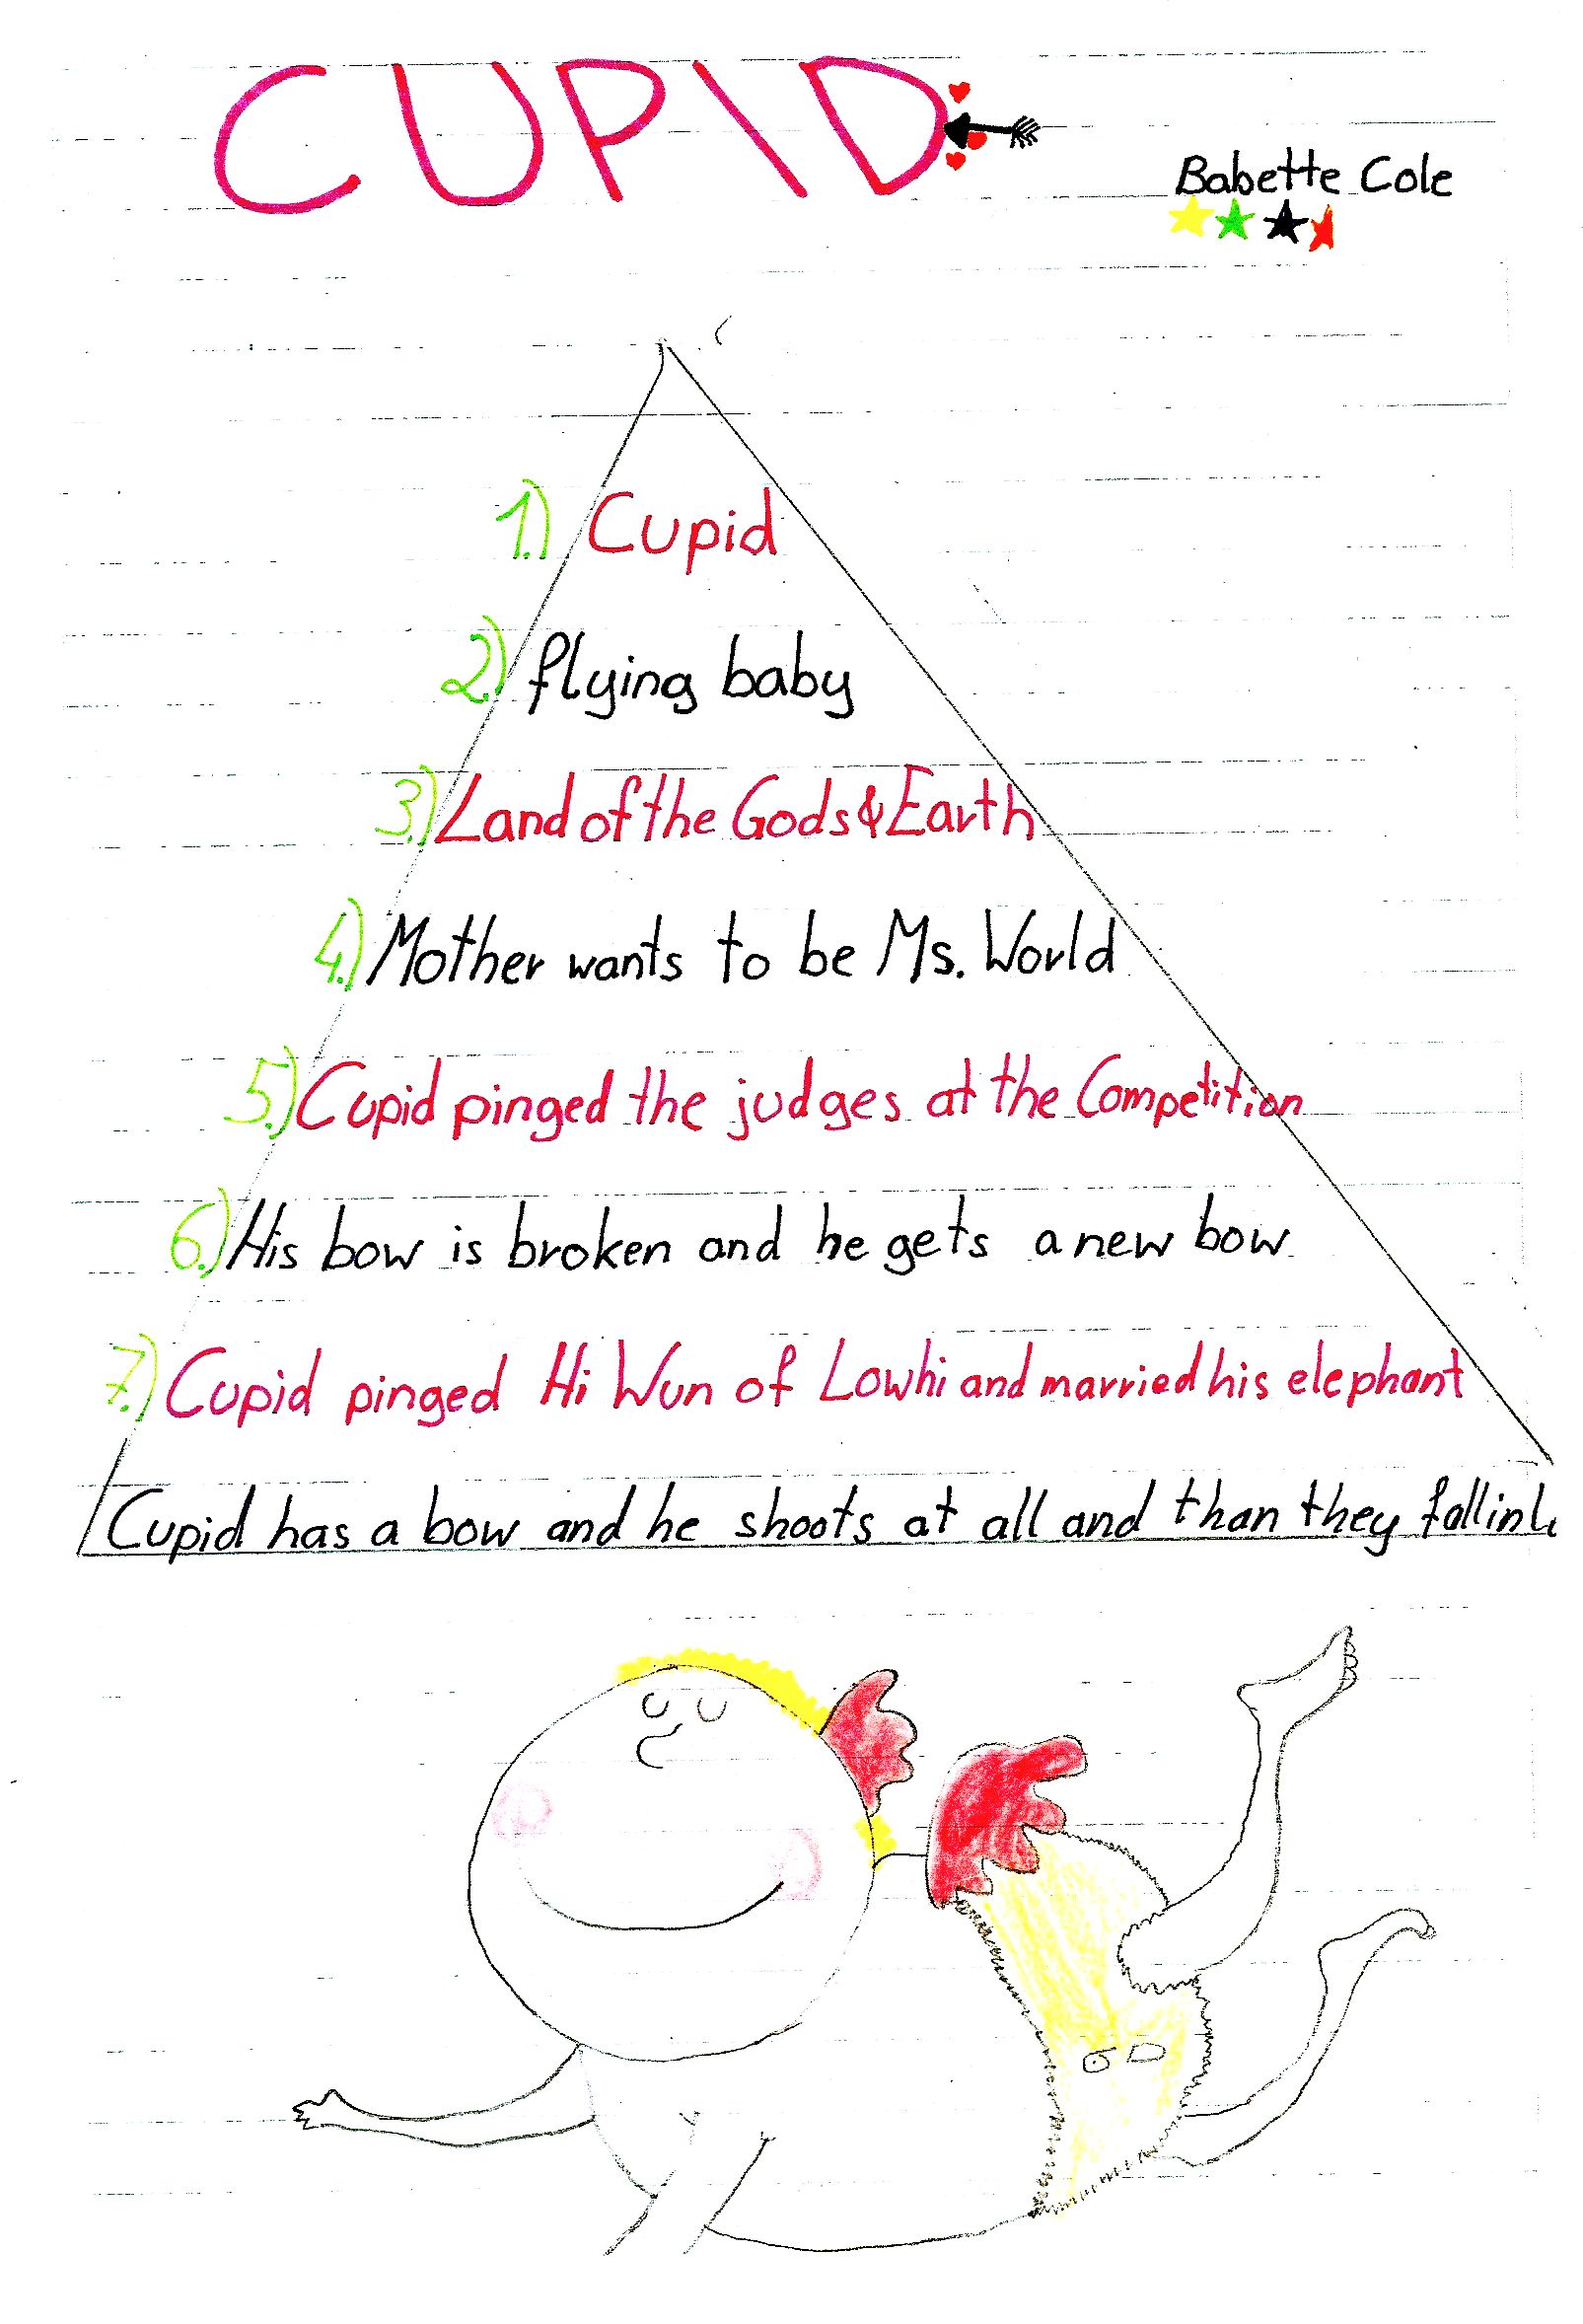 CUPID
Babette Cole
1.) Cupid
2.) flying baby
3.) Land of the Gods & Earth
4.) Mother wants to be Ms. World
5.) Cupid pinged the judges at the Competition
6.) His bow is broken and he gets a new bow
7.) Cupid pinged Hi Wun of Lowhi and married his elephant
Cupid has a bow and he shoots at all and than they fall in